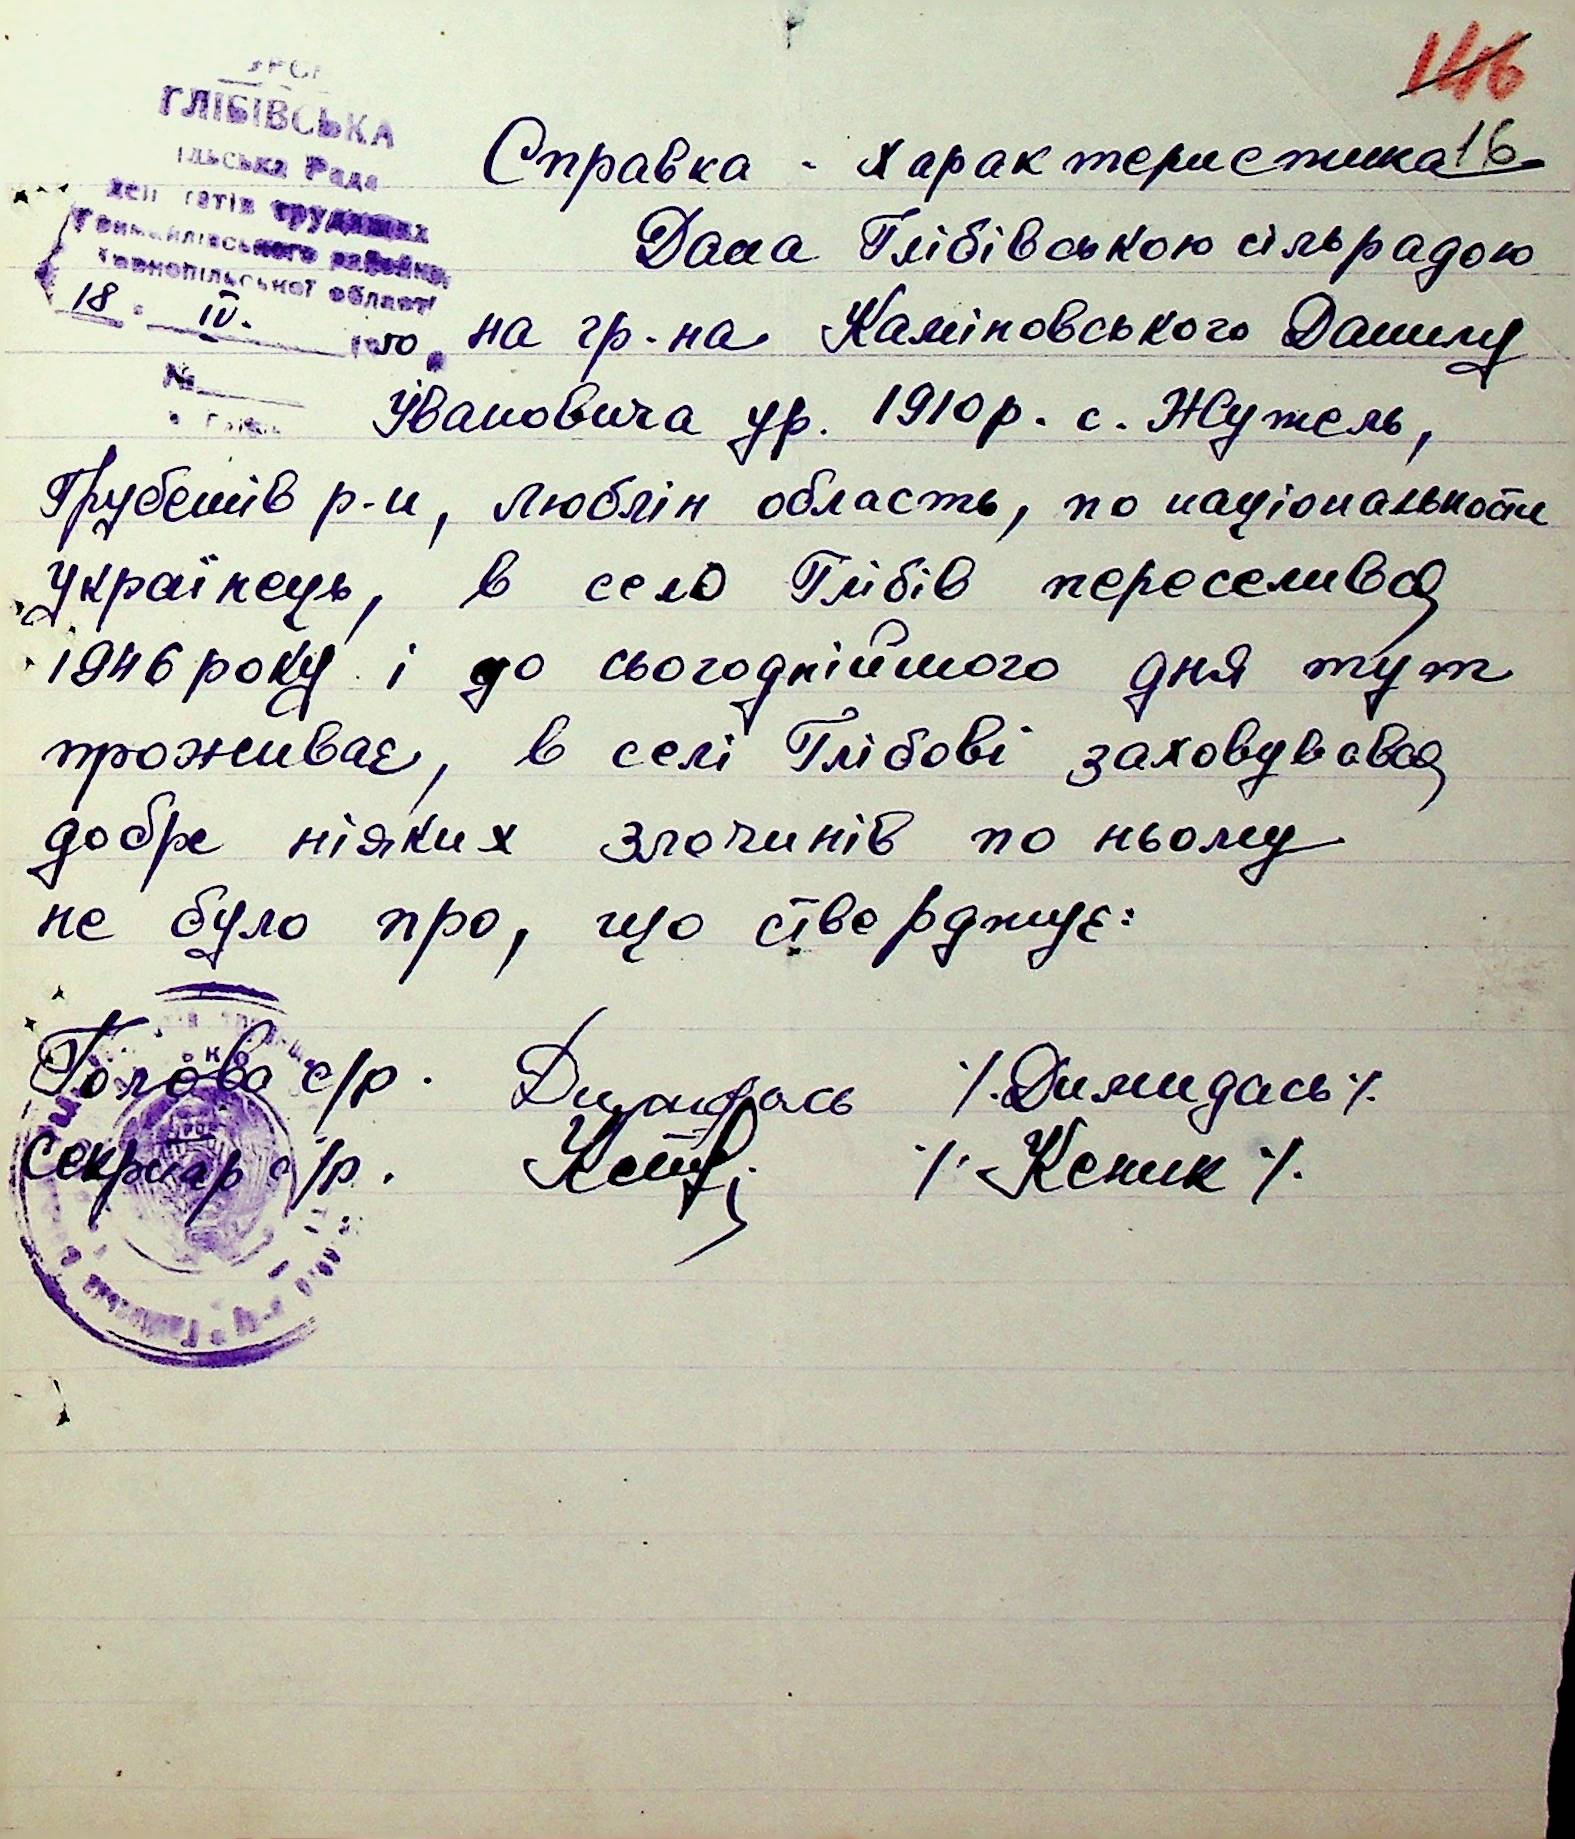 146
16
УРСР
ГЛІБІВСЬКА
ільська Рада
деп татів трудящих
Гримайлівського району,
Тернопільської област
18. IV. 1950
№
Справка - характеристика
Дана Глібівською сільрадою
на гр-на Каміновського Данилу
Івановича ур. 1910 р. с. Жужель,
Грубешів р-н, Люблін область, по національности
Українець, в село Глібів переселився
1946 року і до сьогоднійшого дня тут
проживає, в селі Глібові заховувався
добре ніяких злочинів по ньому
не було про, що стверджує:
Голова с/р. Димидась /.Димидась/.
Секритар с/р. /. Кеник /.